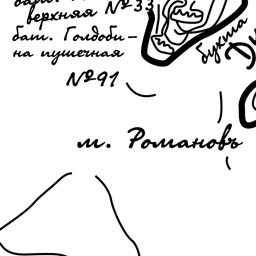 верхняя №33
бат. Голдоби-
на пушечная
бухта
№91
м. Романовъ